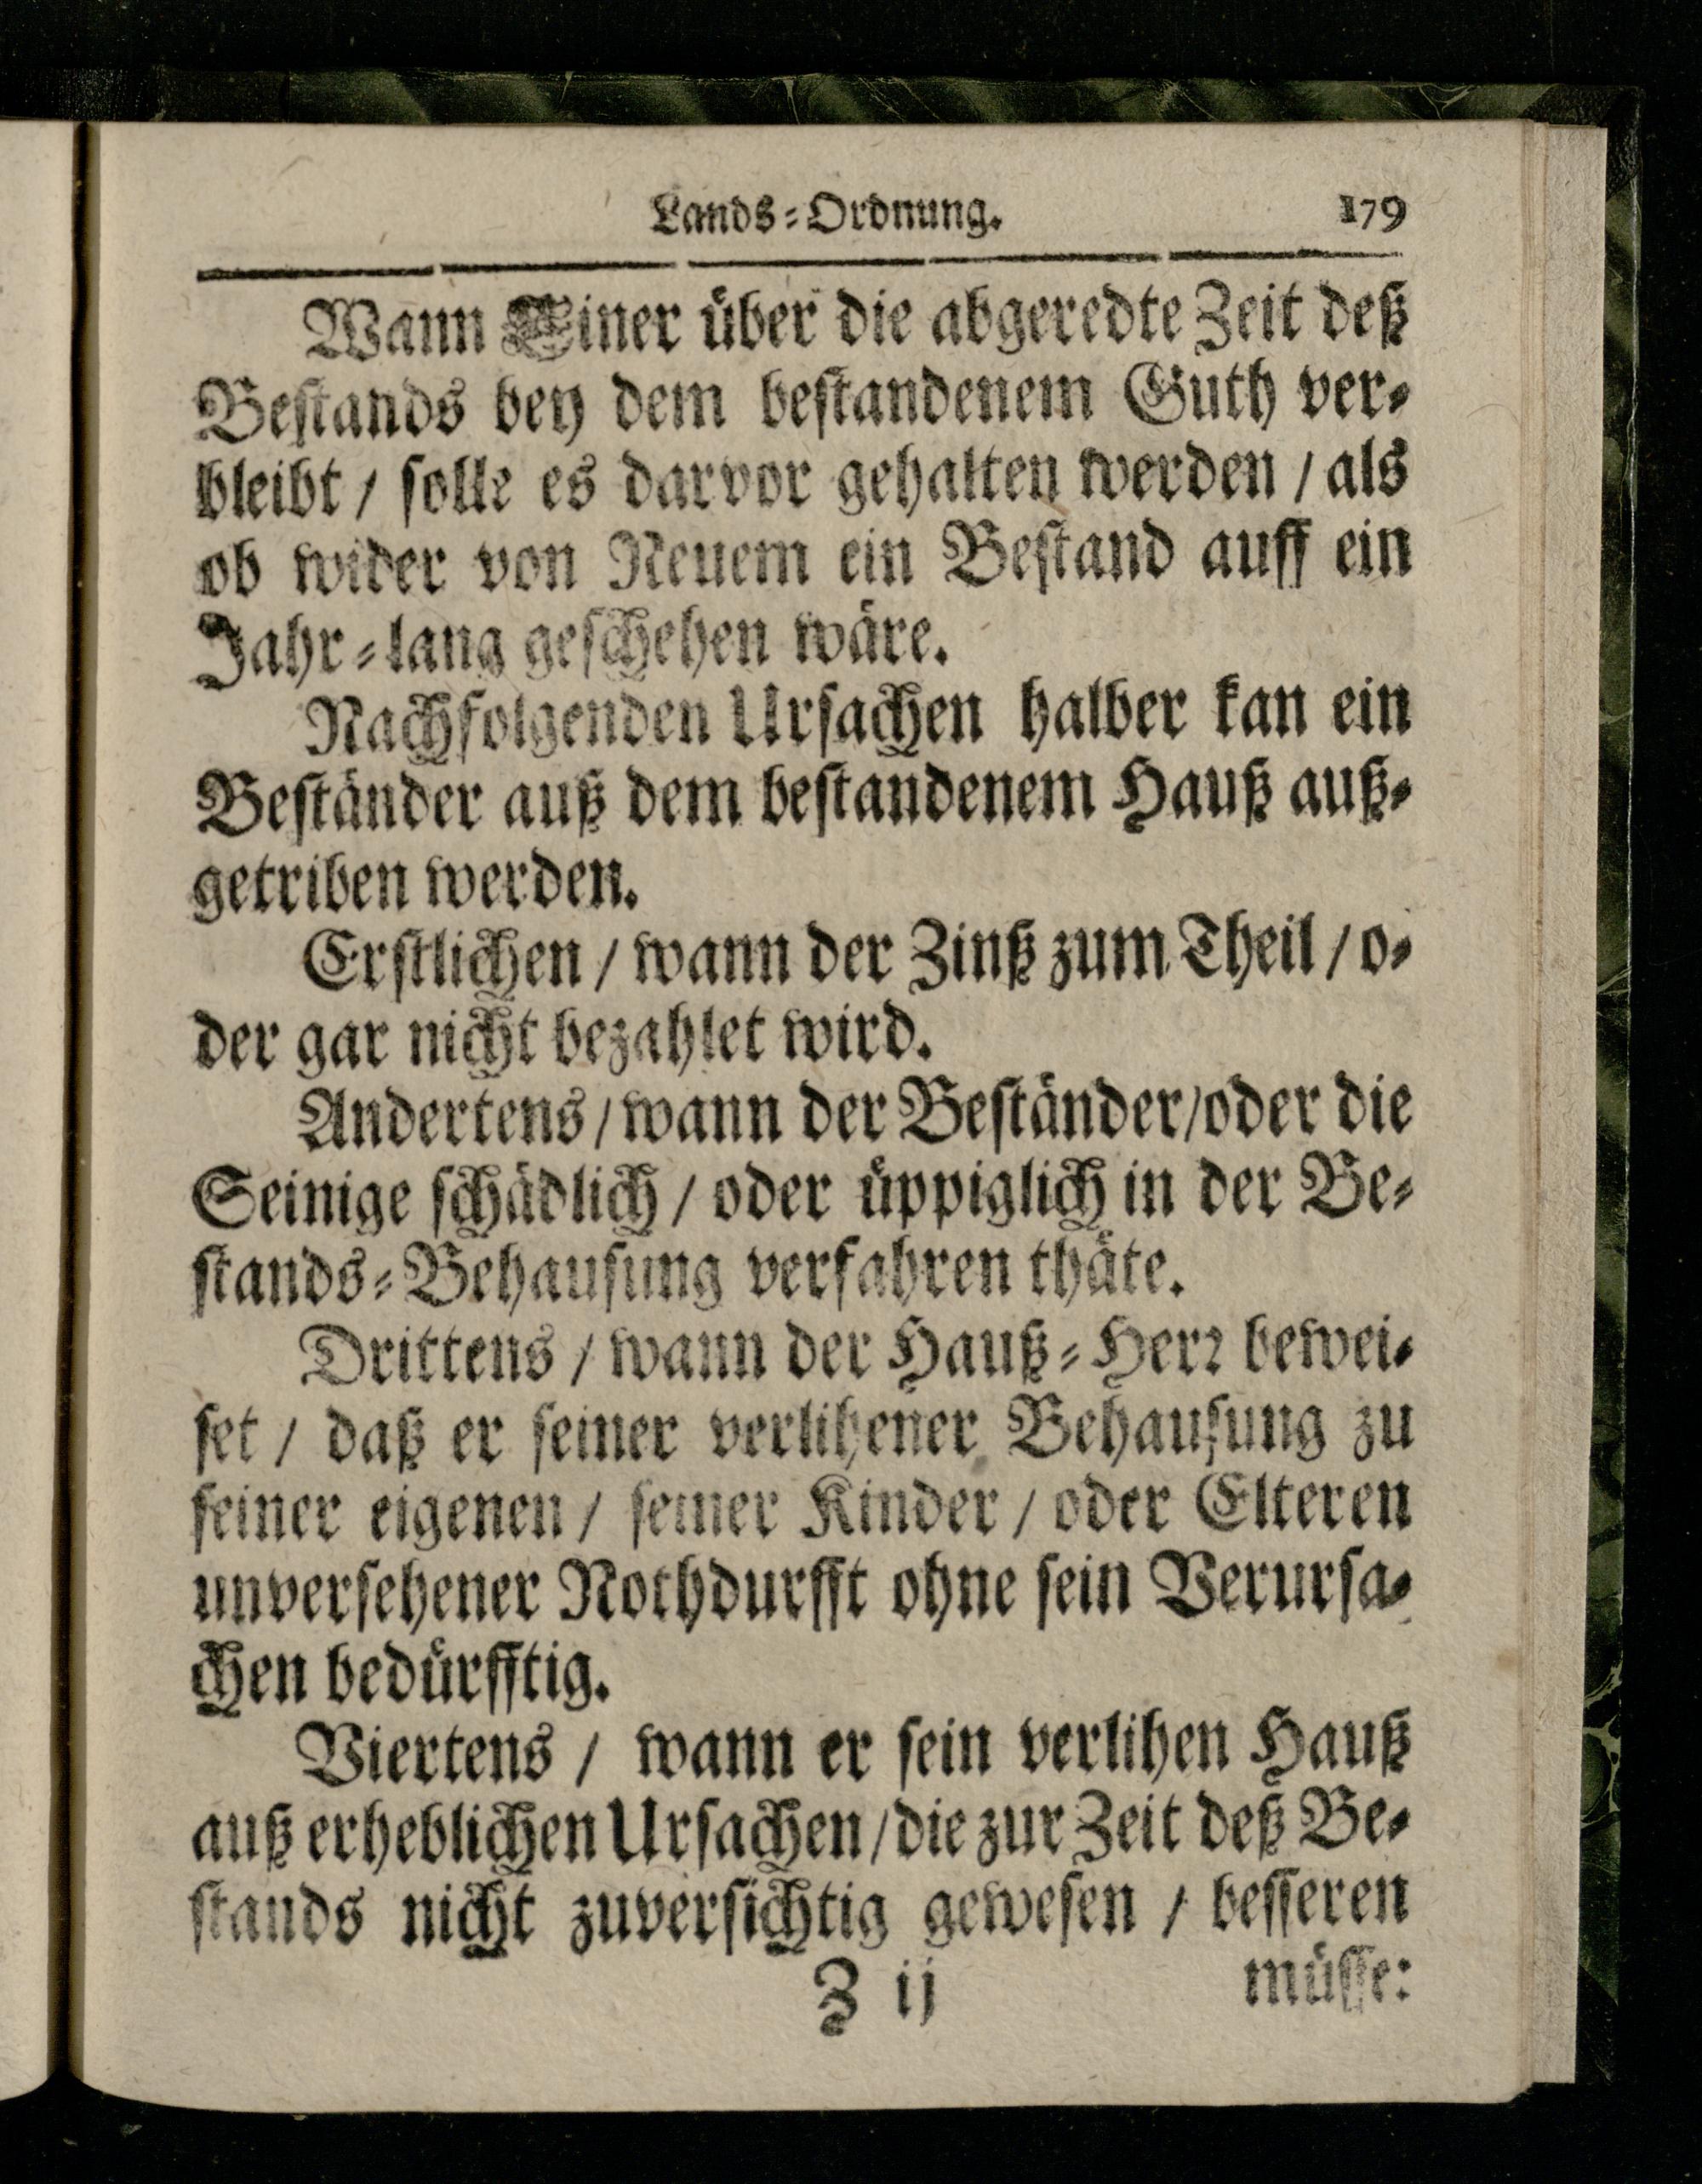 Lands-Ordnung. 179
Wann Einer über die abgeredte Zeit deß
Bestands bey dem bestandenem Guth ver-
bleibt / solle es darvor gehalten werden / als
ob wider von Neuem ein Bestand auff ein
Jahr-lang geschehen wäre.
Nachfolgenden Ursachen halber kan ein
Beständer auß dem bestandenem Hauß auß-
getriben werden.
Erstlichen / wann der Zinß zum Theil / o-
der gar nicht bezahlet wird.
Andertens / wann der Beständer / oder die
Seinige schädlich / oder üppiglich in der Be-
stands-Behausung verfahren thäte.
Drittens / wann der Hauß-Herꝛ bewei-
set / daß er seiner verlihener Behausung zu
seiner eigenen / seiner Kinder / oder Elteren
unversehener Nothdurfft ohne sein Verursa-
chen bedürfftig.
Viertens / wann er sein verlihen Hauß
auß erheblichen Ursachen / die zur Zeit deß Be-
stands nicht zuversichtig gewesen / besseren
Z ij müsse: